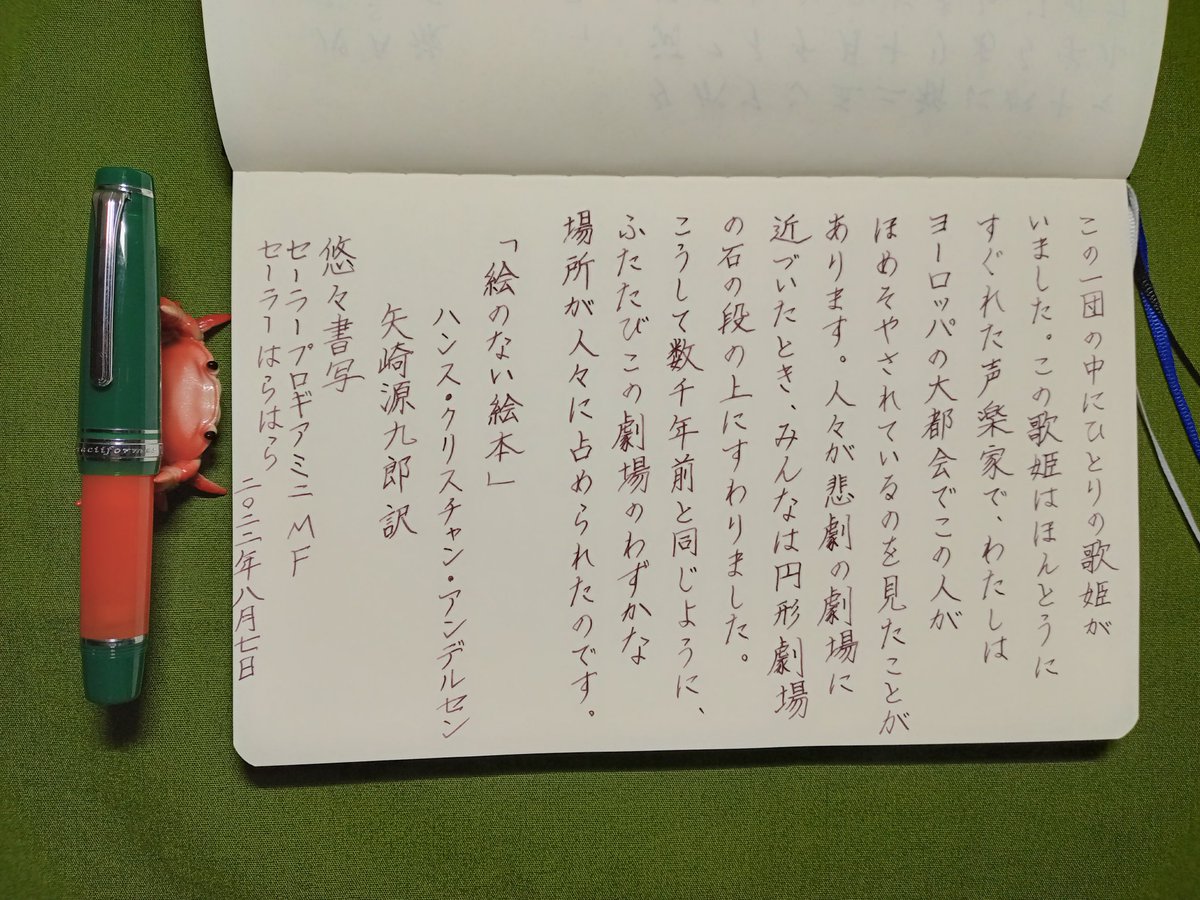 この一団の中にひとりの歌姫が
いました。この歌姫はほんとうに
すぐれた声楽家で、わたしは
ヨーロッパの大都会でこの人が
ほめそやされているのを見たことが
あります。人々が悲劇の劇場に
近づいたとき、みんなは円形劇場
の石の段の上にすわりました。
こうして数千年前と同じように、
ふたたびこの劇場のわずかな
場所が人々に占められたのです。
「絵のない絵本」
ハンス・クリスチャン・アンデルセン
矢崎源九郎訳
悠々書写
セーラープロギアミニ MF
セーラーはらはら
二〇二二年八月七日